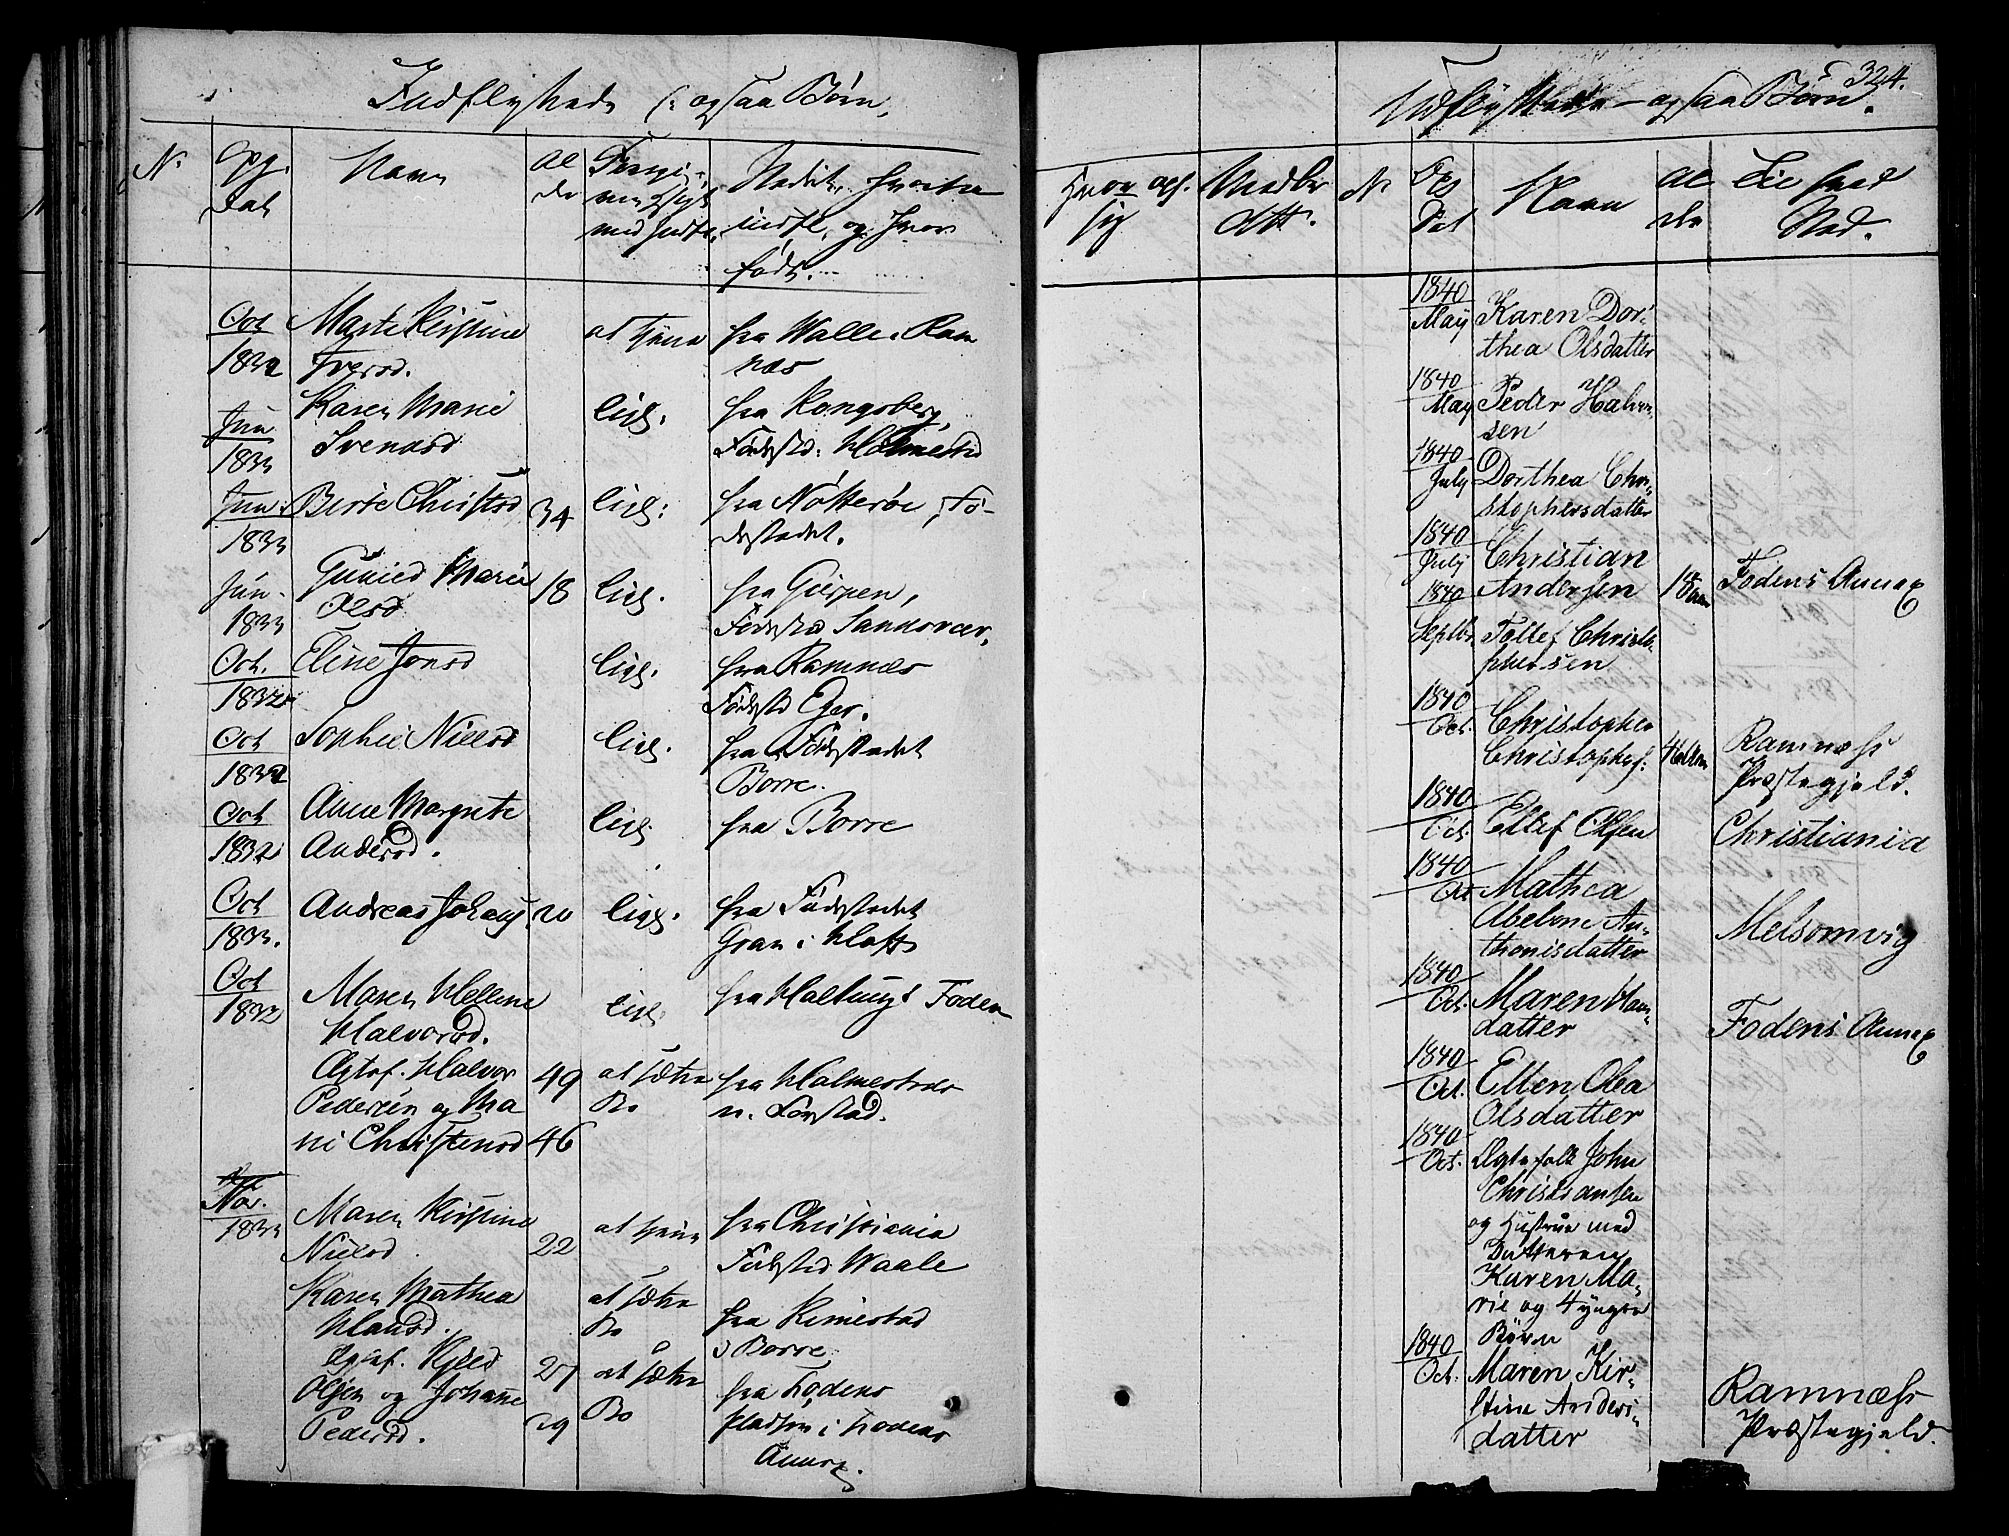 Indflyttede ogsaa Børn,
N.
Opg.
Dat
Navn
Al
der
Stedet, hvorfra
indfl. og hvor
født.
Oct
1832
Marte Kirstine
Iversd.
at tjene
fra Walle i Ram
næs
Jun
1833
Karen Marie
Svendsd
lige.
fra Kongsberg,
Fødested: Holmestrd
Jun
1833
Berte Christsd
34
lige:
fra Nøtterøe, Fø-
destedet.
Jun.
1833
Gunild Marie
Olsd
18
lige.
fra Gierpen,
Fødested Sandsvær,
Oct.
1832
Eline Jonsd
lige.
fra Ramnæs
Fødested Eger.
Oct
1832
Sophie Nielsd
lige.
fra Fødestedet
Borre.
Oct
1832
Anne Margrete
Andersd.
lige.
fra Borre
Oct
1833.
Andreas Johans
20
lige.
fra Fødestedet
Gran i
Oct
1832
Maren Hellene
Halvorsd.
lige.
fra Foden
Ægtef. Halvor
Pedersen og Ma
ri Christensd
49
46
at sætte
Bo
fra Holmestrand
Nov.
1833
Maren Kirstine
Nielsd.
22
at tjene
fra Christiania
Fødested Waale
Karen Mathea
Hansd.
at sætte
Bo
fra Kimestad
i Borre.
Ægtef. Kield
Olsen og Johanne
Pedersd.
27
29
at sætte
Bo
fra Fodens
pladsen i Fodens
Annex.
Hvor opf.
sig
Anmærk
Udflyttede ogsaa Børn.
324.
N.
Dat
Navn
Al
der
Til hvad
Sted.
1840
May
Karen Dor-
thea Olsdatter
1840
May
Peder Halvor-
sen
1840
July
Dorthea Chri-
stophersdatter
1840
July
Christian
Andersen
18 Aar
Fodens Annex
1840
Septbr
Tollef Christo-
phersen
1840
Oct.
Christopher
Christophers:
Ramnæss
Præstegjeld.
1840
Oct.
Ellef Olsen
Christiania
1840
Oct
Mathea
Abelone An-
thonisdatter
Melsomvig
1840
Oct.
Maren Han-
datter
Fodens Annex
1840
Oct.
Ellen Olea
Olsdatter
1840
Oct.
Ægtefolk John
Christiansen
og Hustrue med
Datteren
Karen Ma-
rie og 4 yngre
Børn
1840
Oct.
Maren Kir-
stine Anders-
datter
Ramnæss
Præstegjeld.